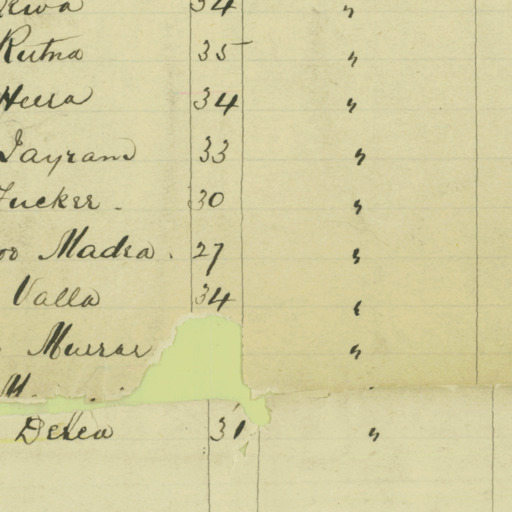 34 "
Rutna 35 "
Heera 34 "
Jayram 33 "
Tucker. 30 "
Madra. 27 "
Valla 34 "
Murrar "
M.
31 "